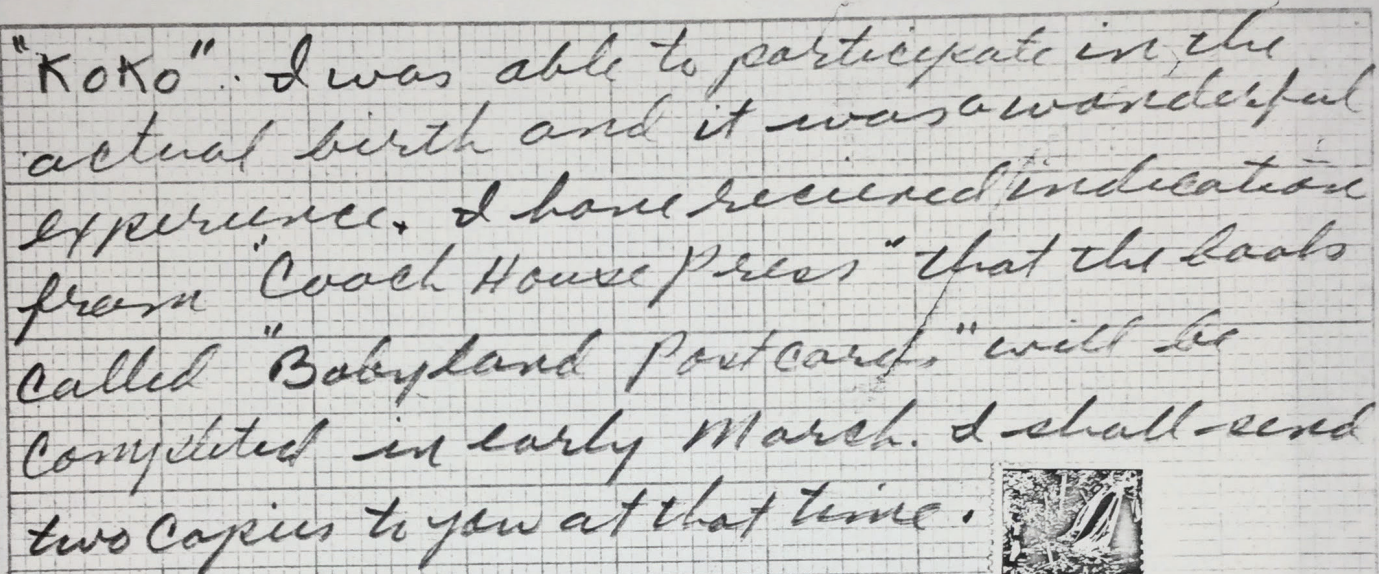 "KOKO". I was able to participate in the
actual birth and it was a wonderful
experience. I have recieved indication
from "Coach House Press" that the books
called "Babyland Postcards" will be
completed in early March. I shall send
two copies to you at that time.